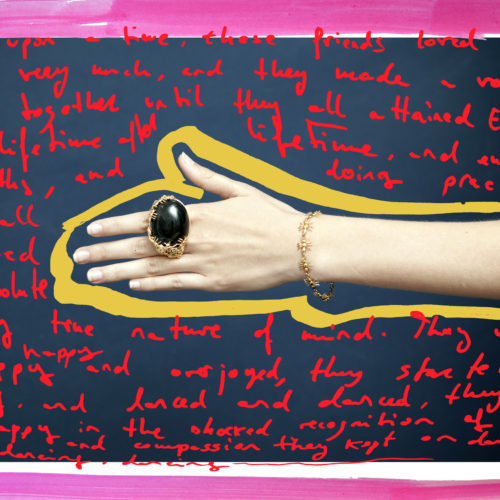 upon a time, these friends loved
very much, and they made a
together until they all attained
lifetime after lifetime, and
and doing
all
true nature of mind. They
happy
and overjoyed, they
and danced and danced, they
happy in the shared recognition of
and compassion they kept on
dancing, dancing